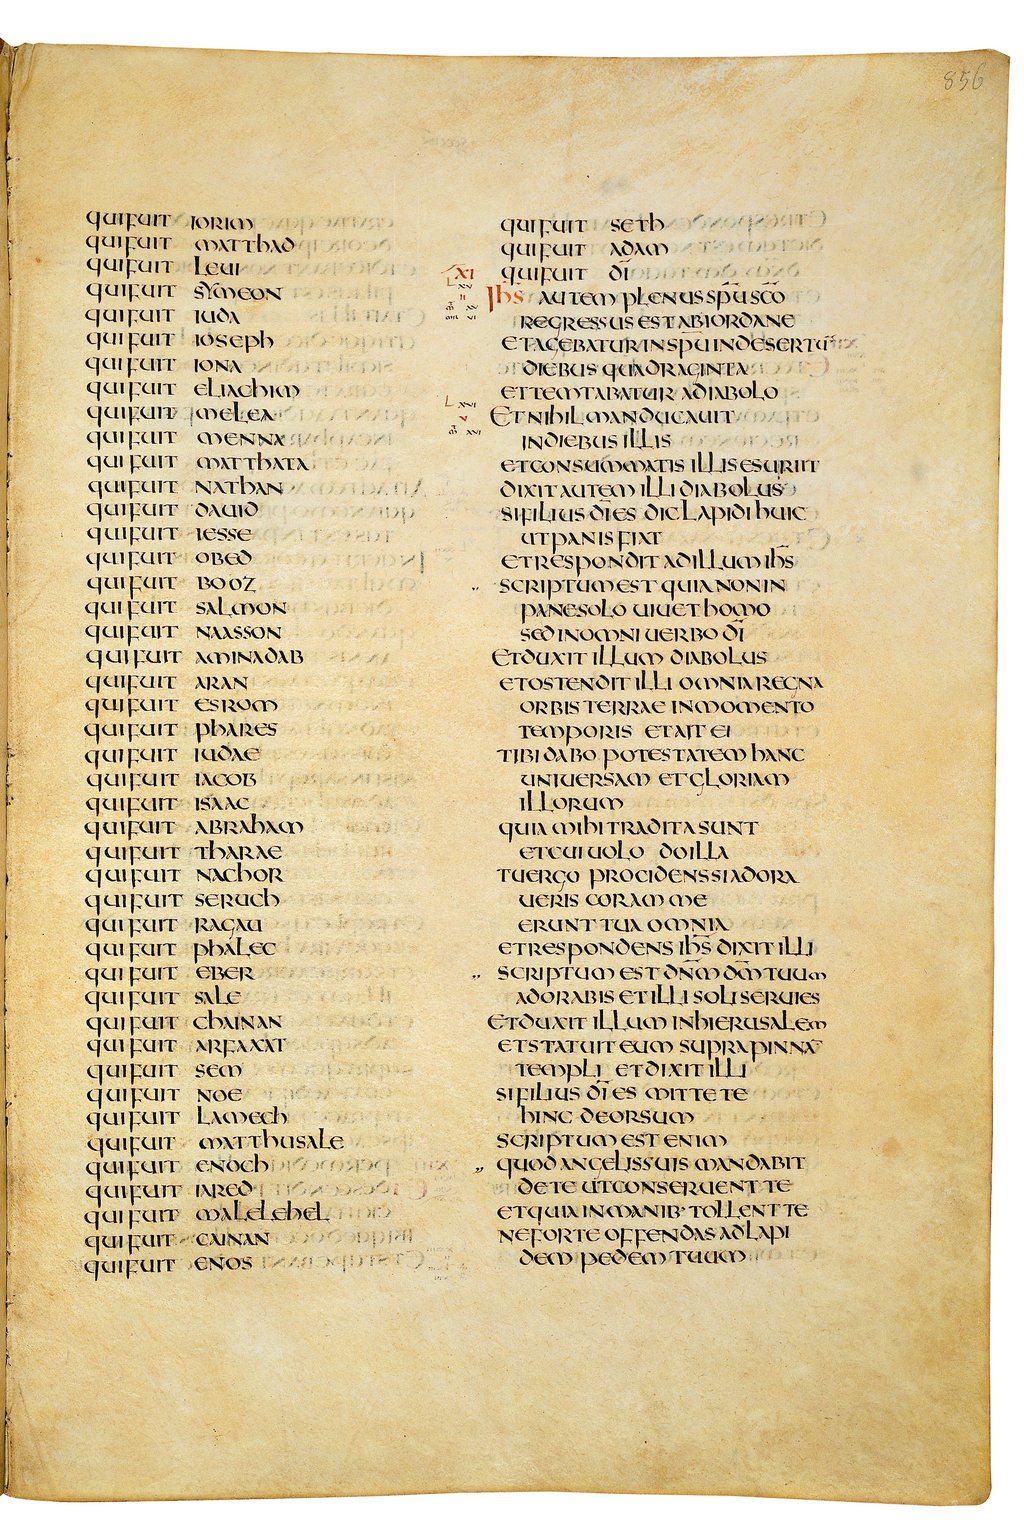 856
qui fuit iorim
qui fuit matthad
qui fuit leui
qui fuit symeon
qui fuit iuda
qui fuit ioseph
qui fuit iona
qui fuit eliachim
qui fuit melea
qui fuit menna
qui fuit matthata
qui fuit nathan
qui fuit dauid
qui fuit iesse
qui fuit obed
qui fuit booz
qui fuit salmon
qui fuit naasson
qui fuit aminadab
qui fuit aran
qui fuit esrom
qui fuit phares
qui fuit iudae
qui fuit iacob
qui fuit isaac
qui fuit abraham
qui fuit tharae
qui fuit nachor
qui fuit seruch
qui fuit ragau
qui fuit phalec
qui fuit eber
qui fuit sale
qui fuit chainan
qui fuit arfaxat
qui fuit sem
qui fuit noe
qui fuit lamech
qui fuit matthusale
qui fuit enoch
qui fuit iared
qui fuit malelehel
qui fuit cainan
qui fuit enos
qui fuit seth
qui fuit adam
XI qui fuit d̅i̅
Ih̅s̅ autem plenus sp̅u̅ s̅c̅o̅
regressus est ab iordane
et agebatur in sp̅u̅ in desertu̅
diebus quadraginta
et temtabatur a diabolo
Et nihil manducauit
in diebus illis
et consummatis illis esuriit
dixit autem illi diabolus
si filius d̅i̅ es dic lapidi huic
ut panis fiat
et respondit ad illum ih̅s̅
scriptum est quia non in
pane solo uiuet homo
sed in omni uerbo d̅i̅
Et duxit illum diabolus
et ostendit illi omnia regna
orbis terrae in momento
temporis et ait ei
tibi dabo potestatem hanc
uniuersam et gloriam
illorum
quia mihi tradita sunt
et cui uolo do illa
tu ergo procidens si adora
ueris coram me
erunt tua omnia
et respondens ih̅s̅ dixit illi
scriptum est d̅n̅m̅ d̅m̅ tuum
adorabis et illi soli seruies
Et duxit illum in hierusalem
et statuit eum supra pinna̅
templi et dixit illi
si filius d̅i̅ es mitte te
hinc deorsum
scriptum est enim
quod angelis suis mandabit
de te ut conseruent te
et quia in manib· tollent te
ne forte offendas ad lapi
dem pedem tuum